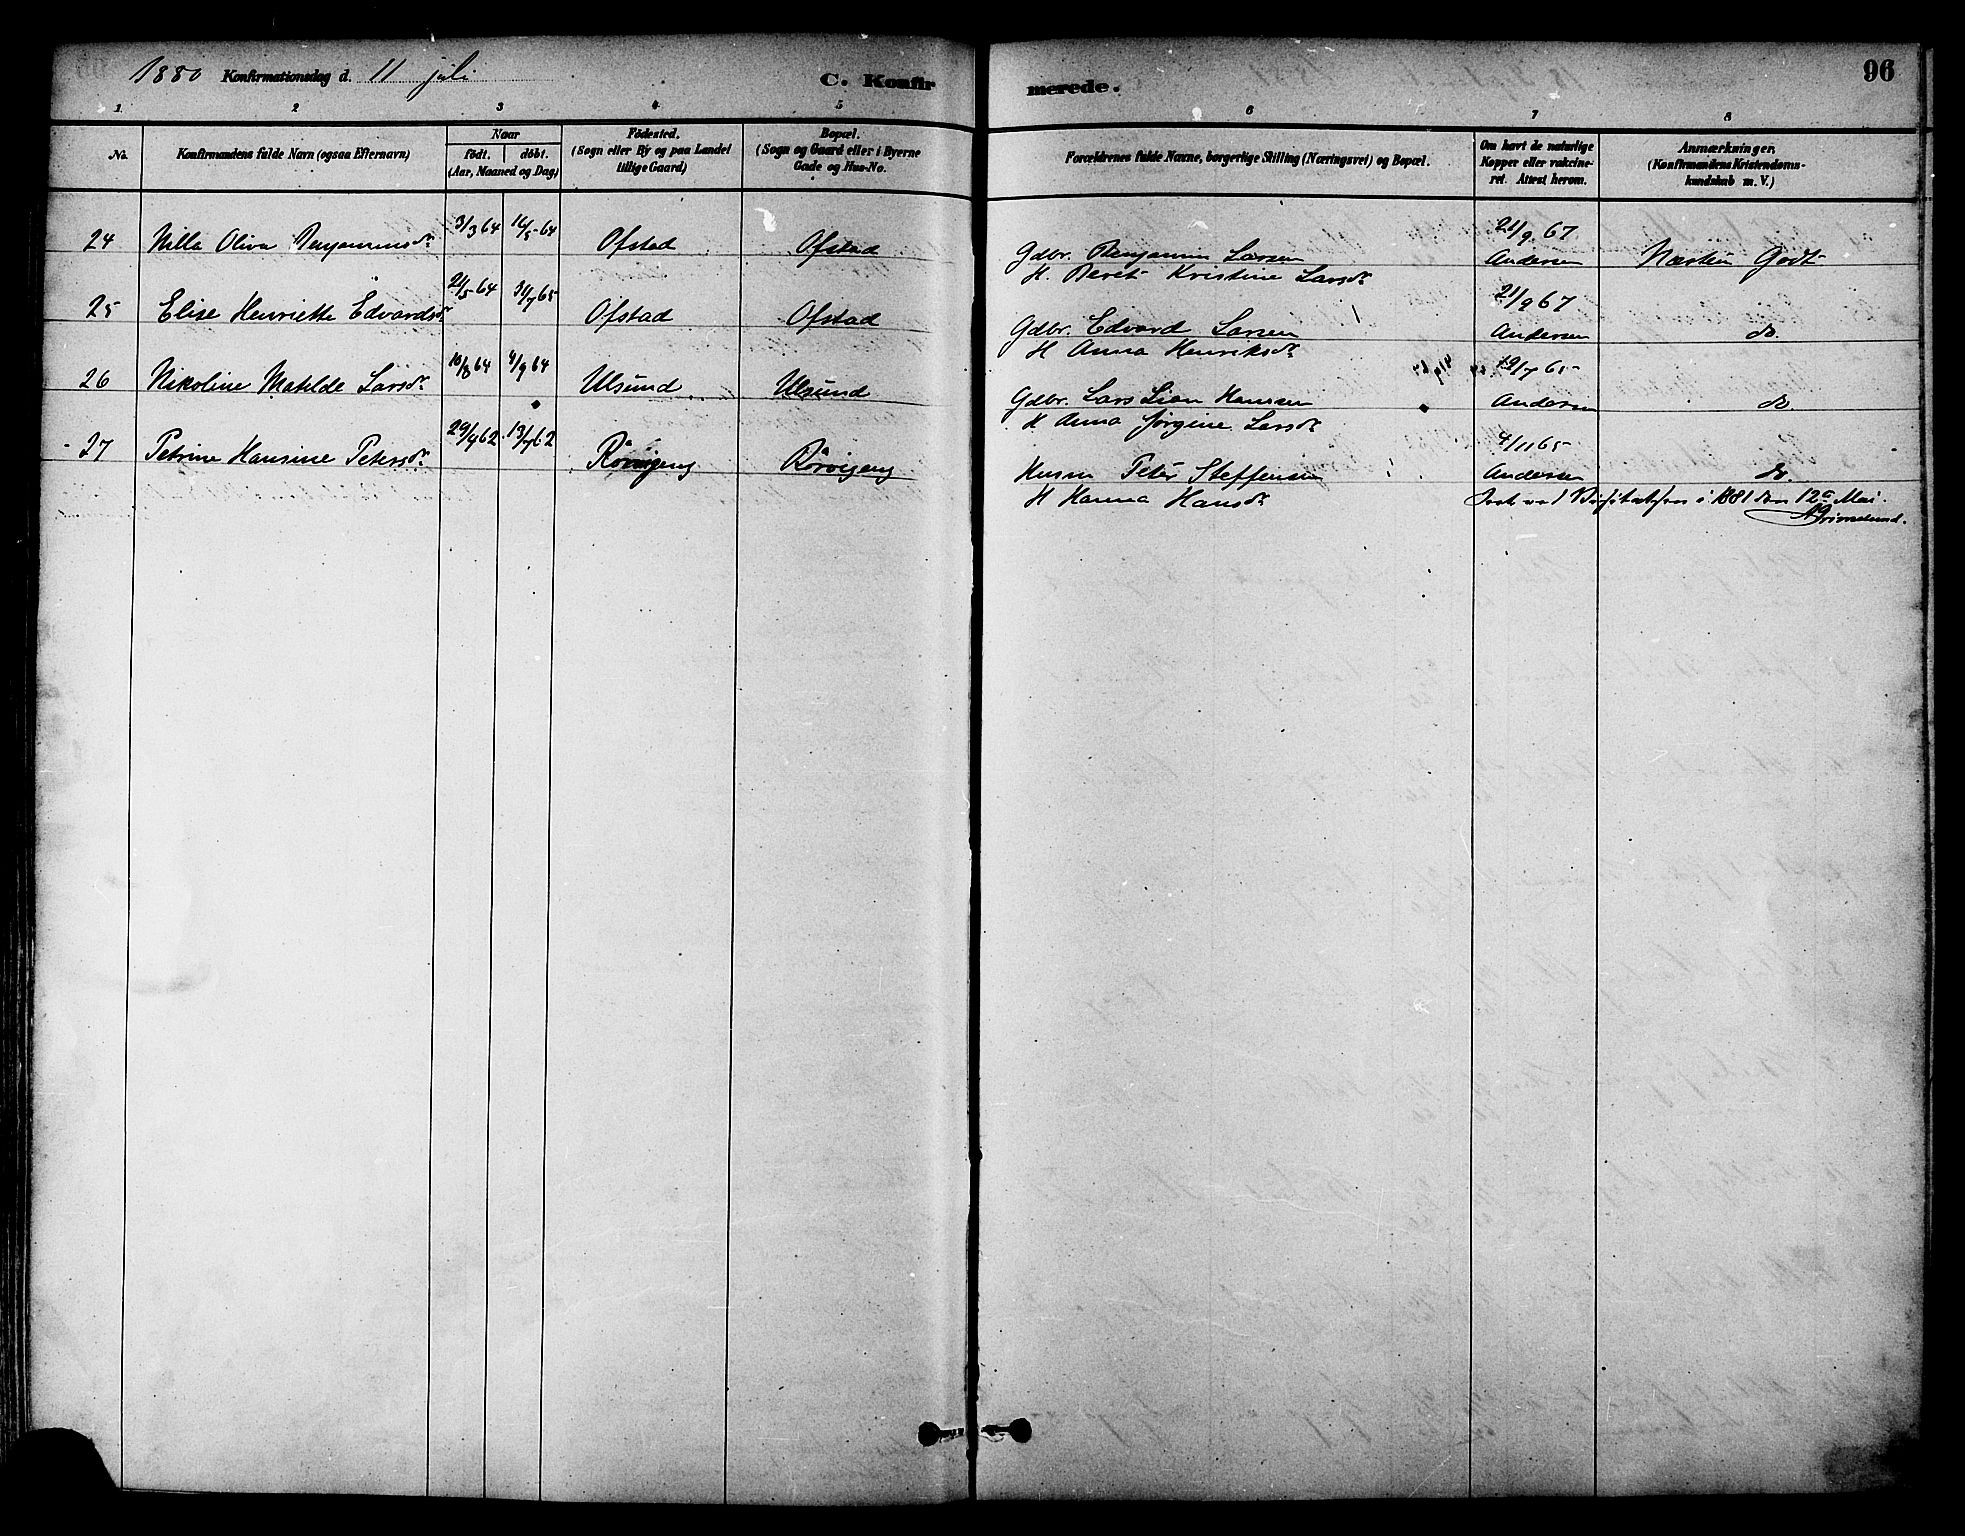 1880 Konfirmationsdag d. 11 juli
C. Konfir
merede.
96
1 2 3 4 5 6 7 8
No.
Konfirmandens fulde Navn (ogsaa Efternavn)
Naar
födt. döbt.
(Aar, Maaned og Dag)
Födested.
(Sogn eller By og paa Landet
tillige Gaard)
Bopæl.
(Sogn og Gaard eller i Byerne
Gade og Hus-No.
Forældrenes fulde Navne, borgerlige Stilling (Næringsvei) og Bopæl.
Om havt de naturlige
Kopper eller vakcine-
ret. Attest herom.
Anmærkninger,
(Konfirmandens Kristendoms-
kundskab m. V.)
24 Nilla Oliva Benjaminsdr. 3/3 64 16/5 64 Ofstad Ofstad Gdbr. Benjamin Larsen 21/9 67
H. Beret Kristine Larsdr. Andersen Næsten Godt
25 Elise Henriette Edvardsdr. 2/5 64 31/7 65 Ofstad Ofstad Gdbr. Edvard Larsen 21/9 67
H Anna Henriksdr. Andersen do.
26 Nikoline Matilde Larsdr. 10/8 64 4/9 64 Ulsund Ulsund Gdbr. Lars Sion Hansen 19/7 65
H Anna Jørgine Larsdr. Andersen do.
27 Petrine Hansine Petersdr. 29/4 62 13/7 62 Rörvigeng Rörvigeng Husm Peter Steffensen 4/11 65
H Hanna Hansdr. Andersen do.
i 1881 den 12te Mai.
Grimelund.